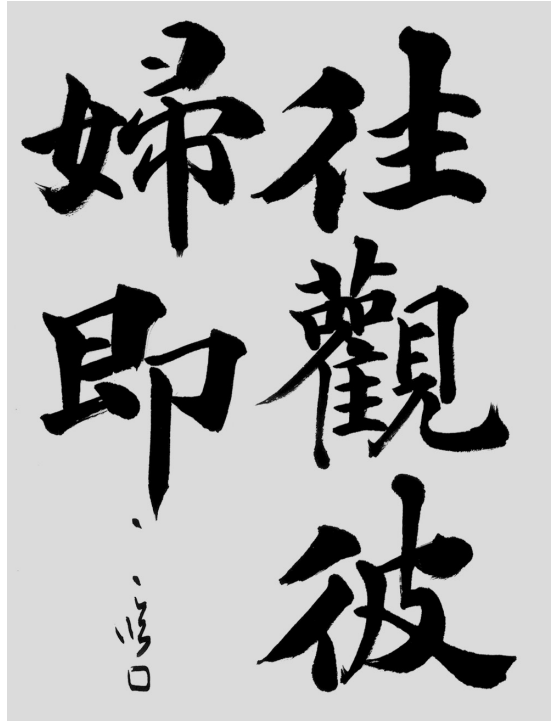 往觀彼
婦即